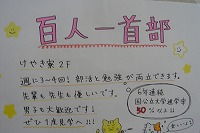 百人一首部
けやき家2F
週に3〜4回! 部活と勉強が両立できます。
先輩も先生も優しいです。
男子も大歓迎です!
ぜひ1度見学へ!!
6年連続
国公立大学進学率
50%以上!!